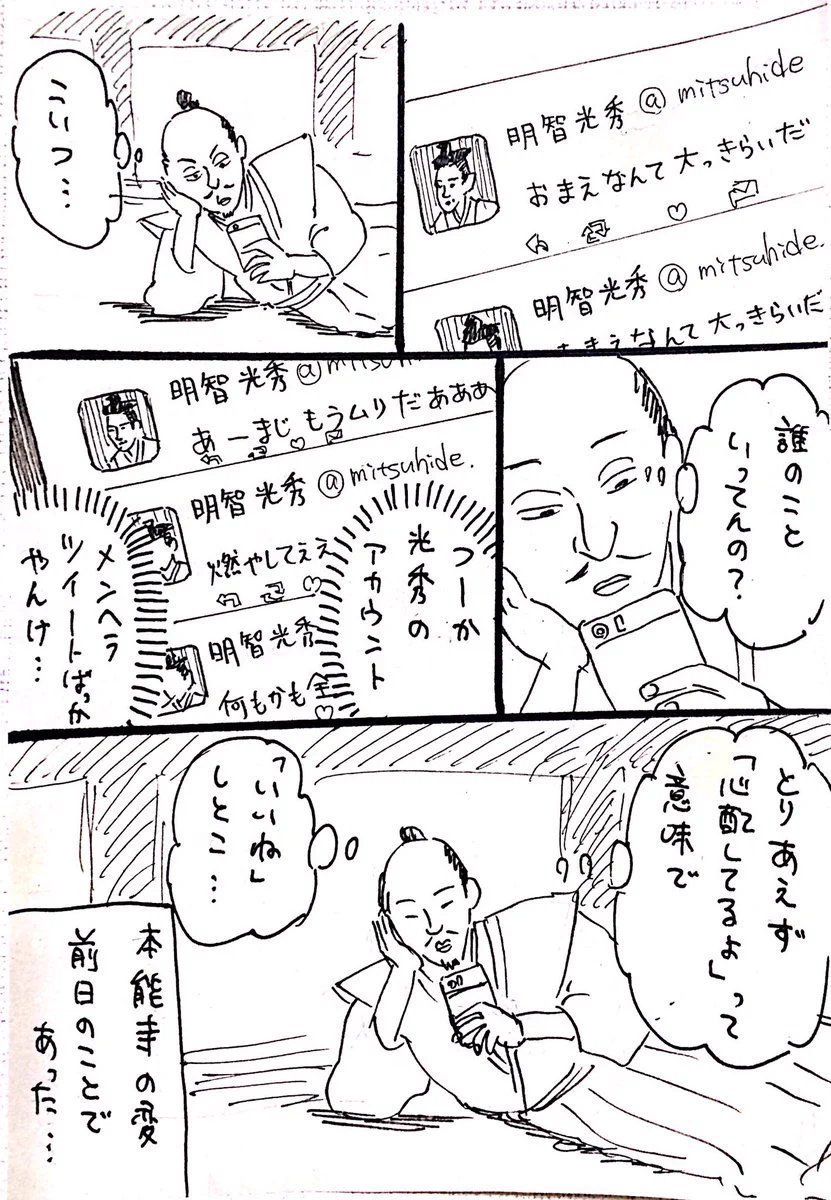 明智光秀@mitsuhide
おまえなんて大っきらいだ
明智光秀@mitsuhide.
おまえなんて大っきらいだ
こいつ…
誰のこと
いってんの？
明智光秀@mitsuhide
あーまじもうムリだあああ
明智光秀@mitsuhide.
燃やしてえ
明智光秀
何もかも全
つーか
光秀の
アカウント
メンヘラ
ツイートばっか
やんけ…
とりあえず
「心配してるよ」って
意味で
「いいね」
しとこ…
本能寺の変
前日のことで
あった…